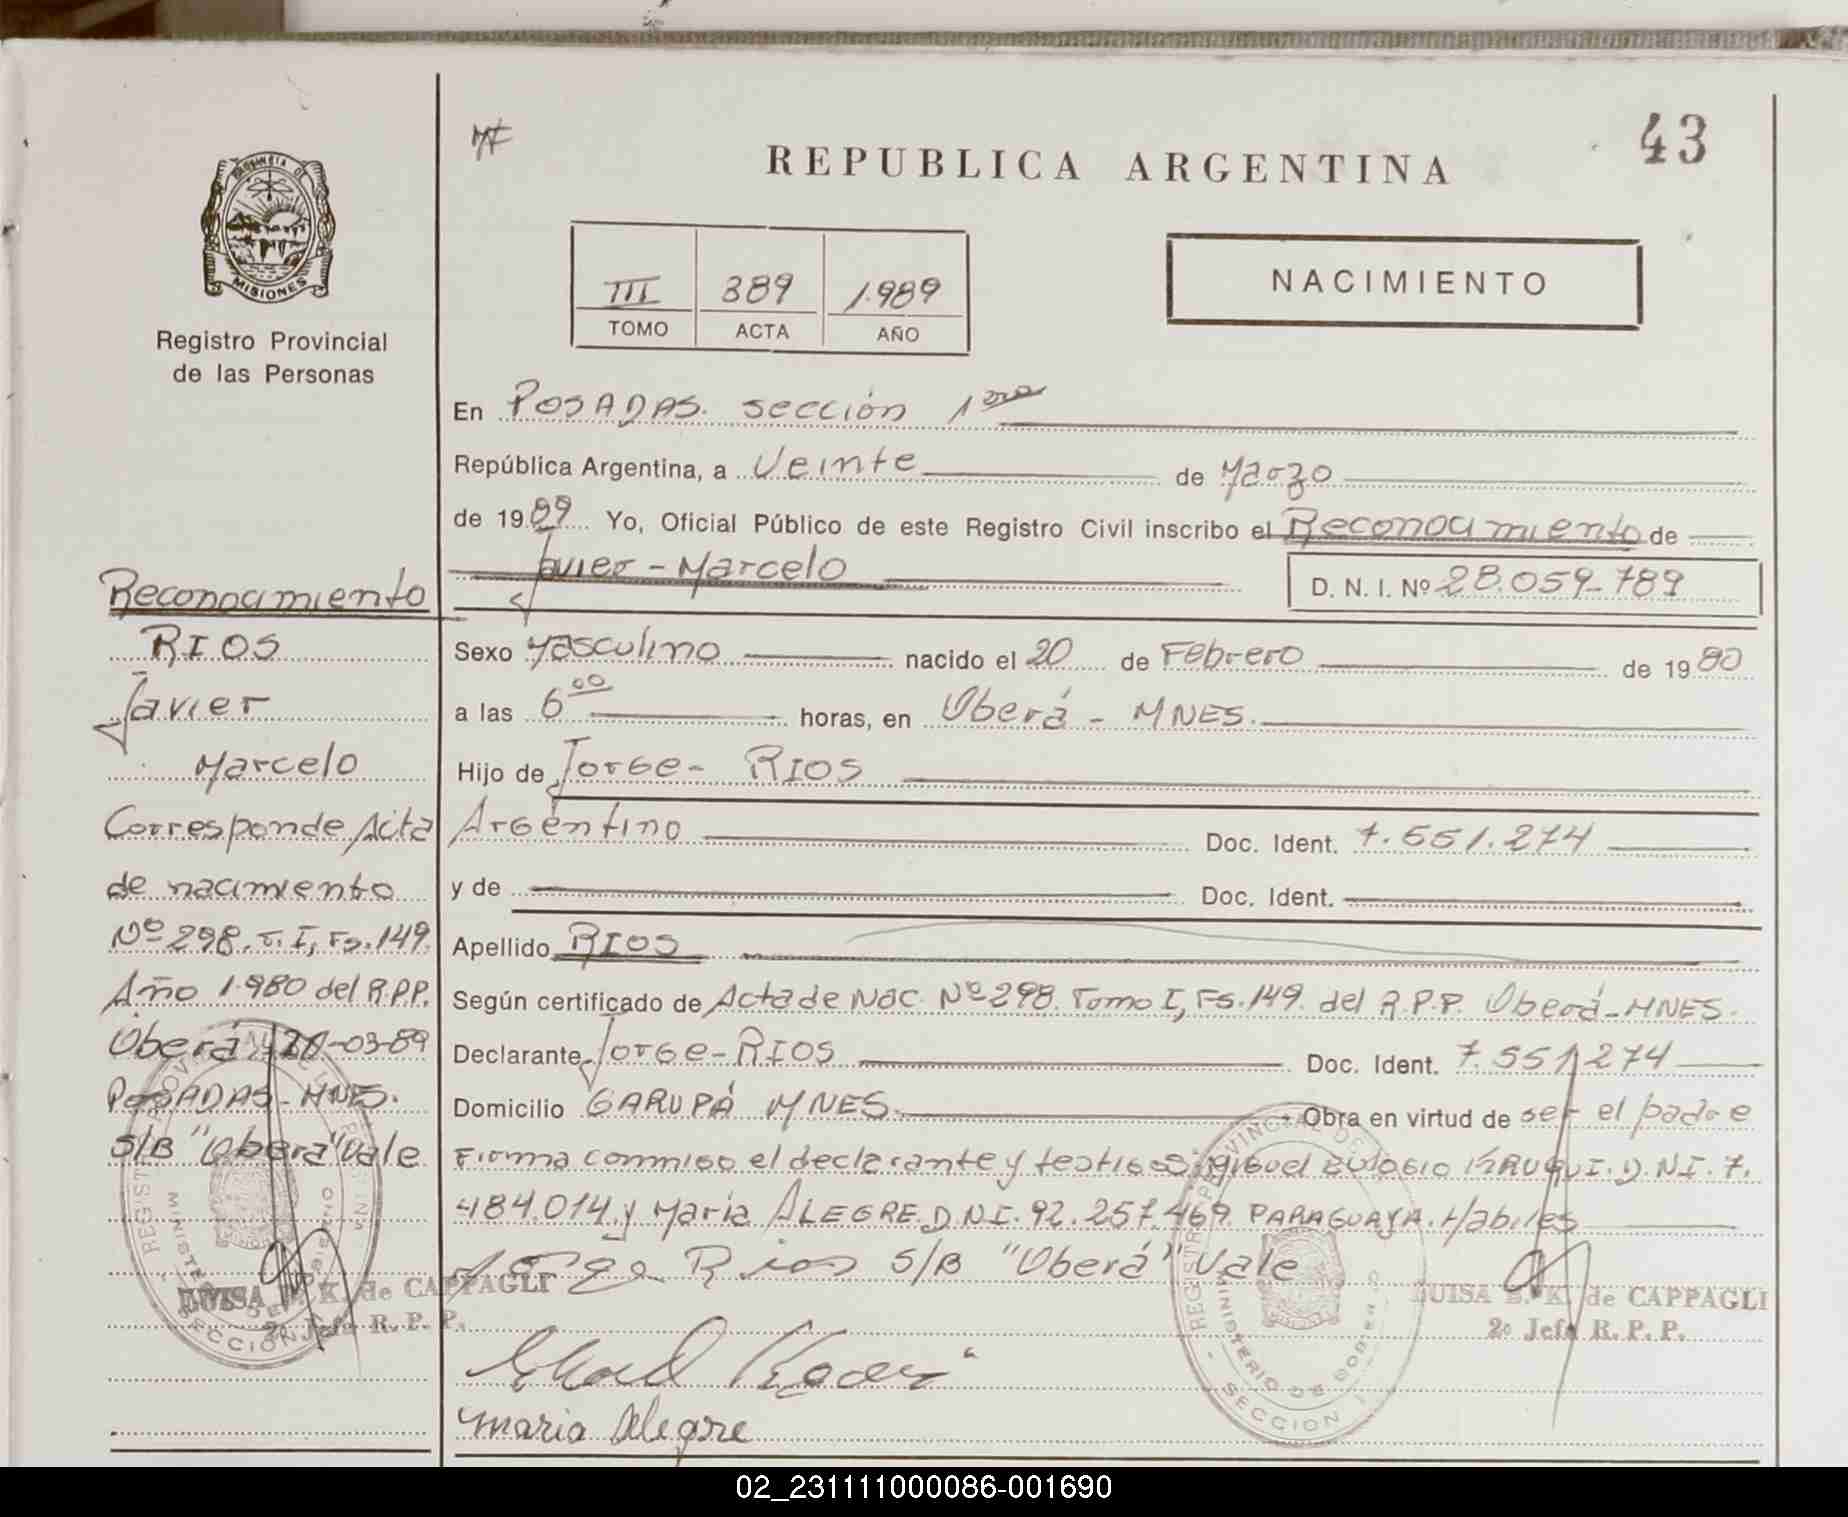 43
REPUBLICA ARGENTINA
PROVINCIA DE
MISIONES
Registro Provincial
de las Personas
III 389 1.989
TOMO ACTA AÑO
NACIMIENTO
En POSADAS. sección 1era
República Argentina, a Veinte de Marzo
de 1989 Yo, Oficial Público de este Registro Civil inscribo el Reconocimiento de
Javier - Marcelo
D. N. I. Nº 28.059-789
Sexo Masculino nacido el 20 de Febrero de 1980
a las 6 00 horas, en Oberá - MNES.
Hijo de Jorge - RIOS
Argentino Doc. Ident. 7.551.274
y de Doc. Ident.
Apellido RIOS
Según certificado de Acta de Nac. Nº 298. Tomo I, Fs. 149. del R.P.P. Oberá - MNES.
Declarante Jorge - RIOS Doc. Ident. 7.551.274
Domicilio GARUPÁ MNES. Obra en virtud de ser el padre
Firma conmigo el declarante y testigos: Miguel Eulogio D.N.I. 7.
484.014 y María ALEGRE. D.N.I. 92.257.469. PARAGUAYA. Habiles
Jorge Rios S/B "Oberá" Vale
LUISA E. K. de CAPPAGLI
2º Jefa R. P. P.
maria Alegre
Reconocimiento
RIOS
Javier
Marcelo
Corresponde Acta
de nacimiento
Nº 298. T. I, Fs. 149.
Año 1.980 del R.P.P.
Oberá 20-03-89
POSADAS - MNES.
S/B "Oberá" Vale
LUISA E. K. de CAPPAGLI
2º Jefa R. P. P.
02_231111000086-001690